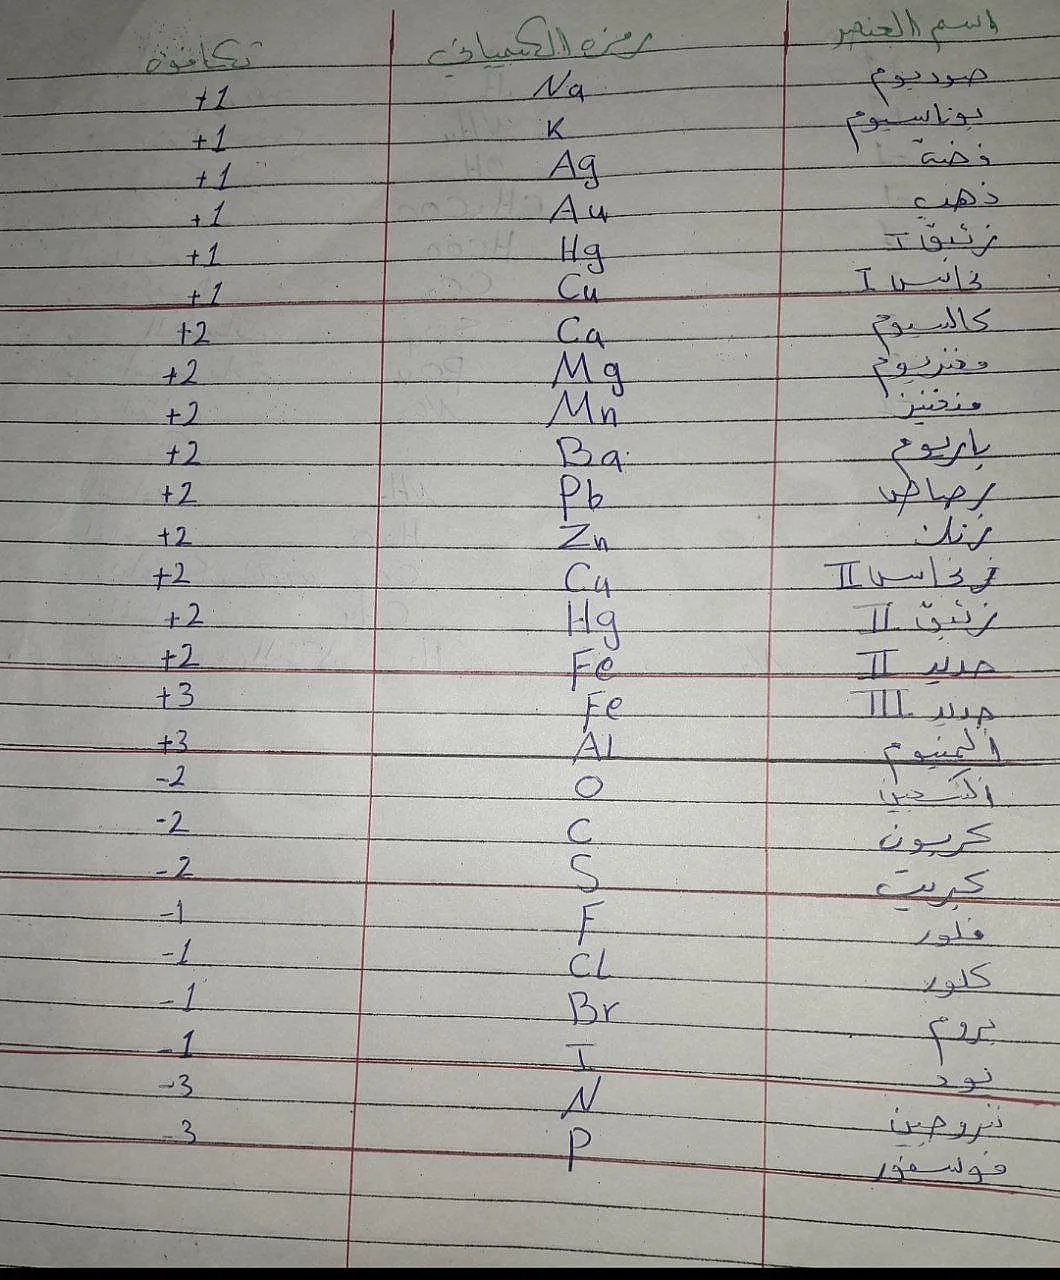 اسم العنصر رمزه الكيميائي تكافؤه
صوديوم Na +1
بوتاسيوم K +1
فضة Ag +1
ذهب Au +1
زئبق I Hg +1
نحاس I Cu +1
كالسيوم Ca +2
مغنزيوم Mg +2
منغنيز Mn +2
باريوم Ba +2
رصاص Pb +2
زنك Zn +2
نحاس II Cu +2
زئبق II Hg +2
حديد II Fe +2
حديد III Fe +3
المنيوم AL +3
اكسجين O -2
كربون C -2
كبريت S -2
فلور F -1
كلور CL -1
بروم Br -1
يود I -1
نتروجين N -3
فوسفور P -3